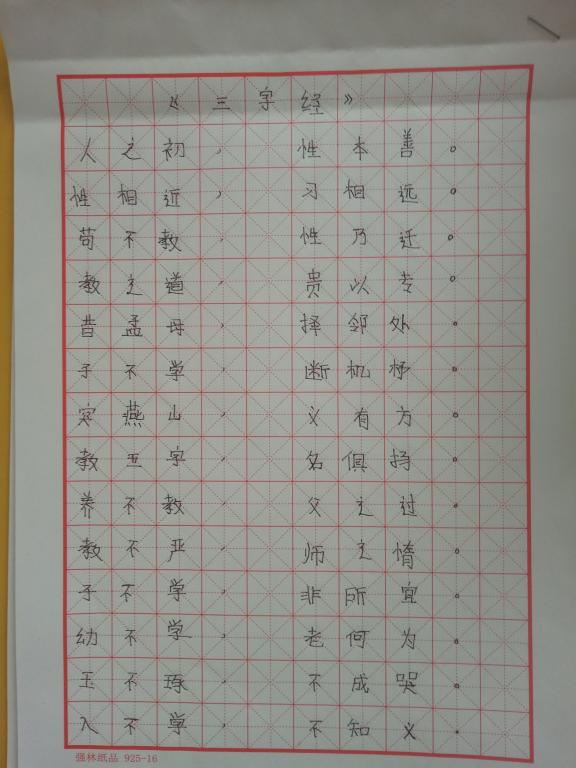 《三字经》
人之初，性本善。
性相近，习相远。
苟不教，性乃迁。
教之道，贵以专。
昔孟母，择邻处。
子不学，断机杼。
窦燕山，义有方。
教五字，名俱扬。
养不教，父之过。
教不严，师之惰。
子不学，非所宜。
幼不学，老何为。
玉不琢，不成哭。
人不学，不知义。
强林纸品 925-16